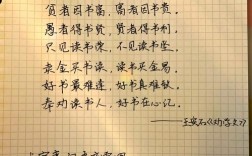 贫者因书富，富者因书贵。
愚者得书贤，贤者得书利。
只见读书荣，不见读书坠。
卖金买书读，读书买金易。
好书最难逢，好书真难致。
奉劝读书人，好书在心记。
——王安石《劝学文》